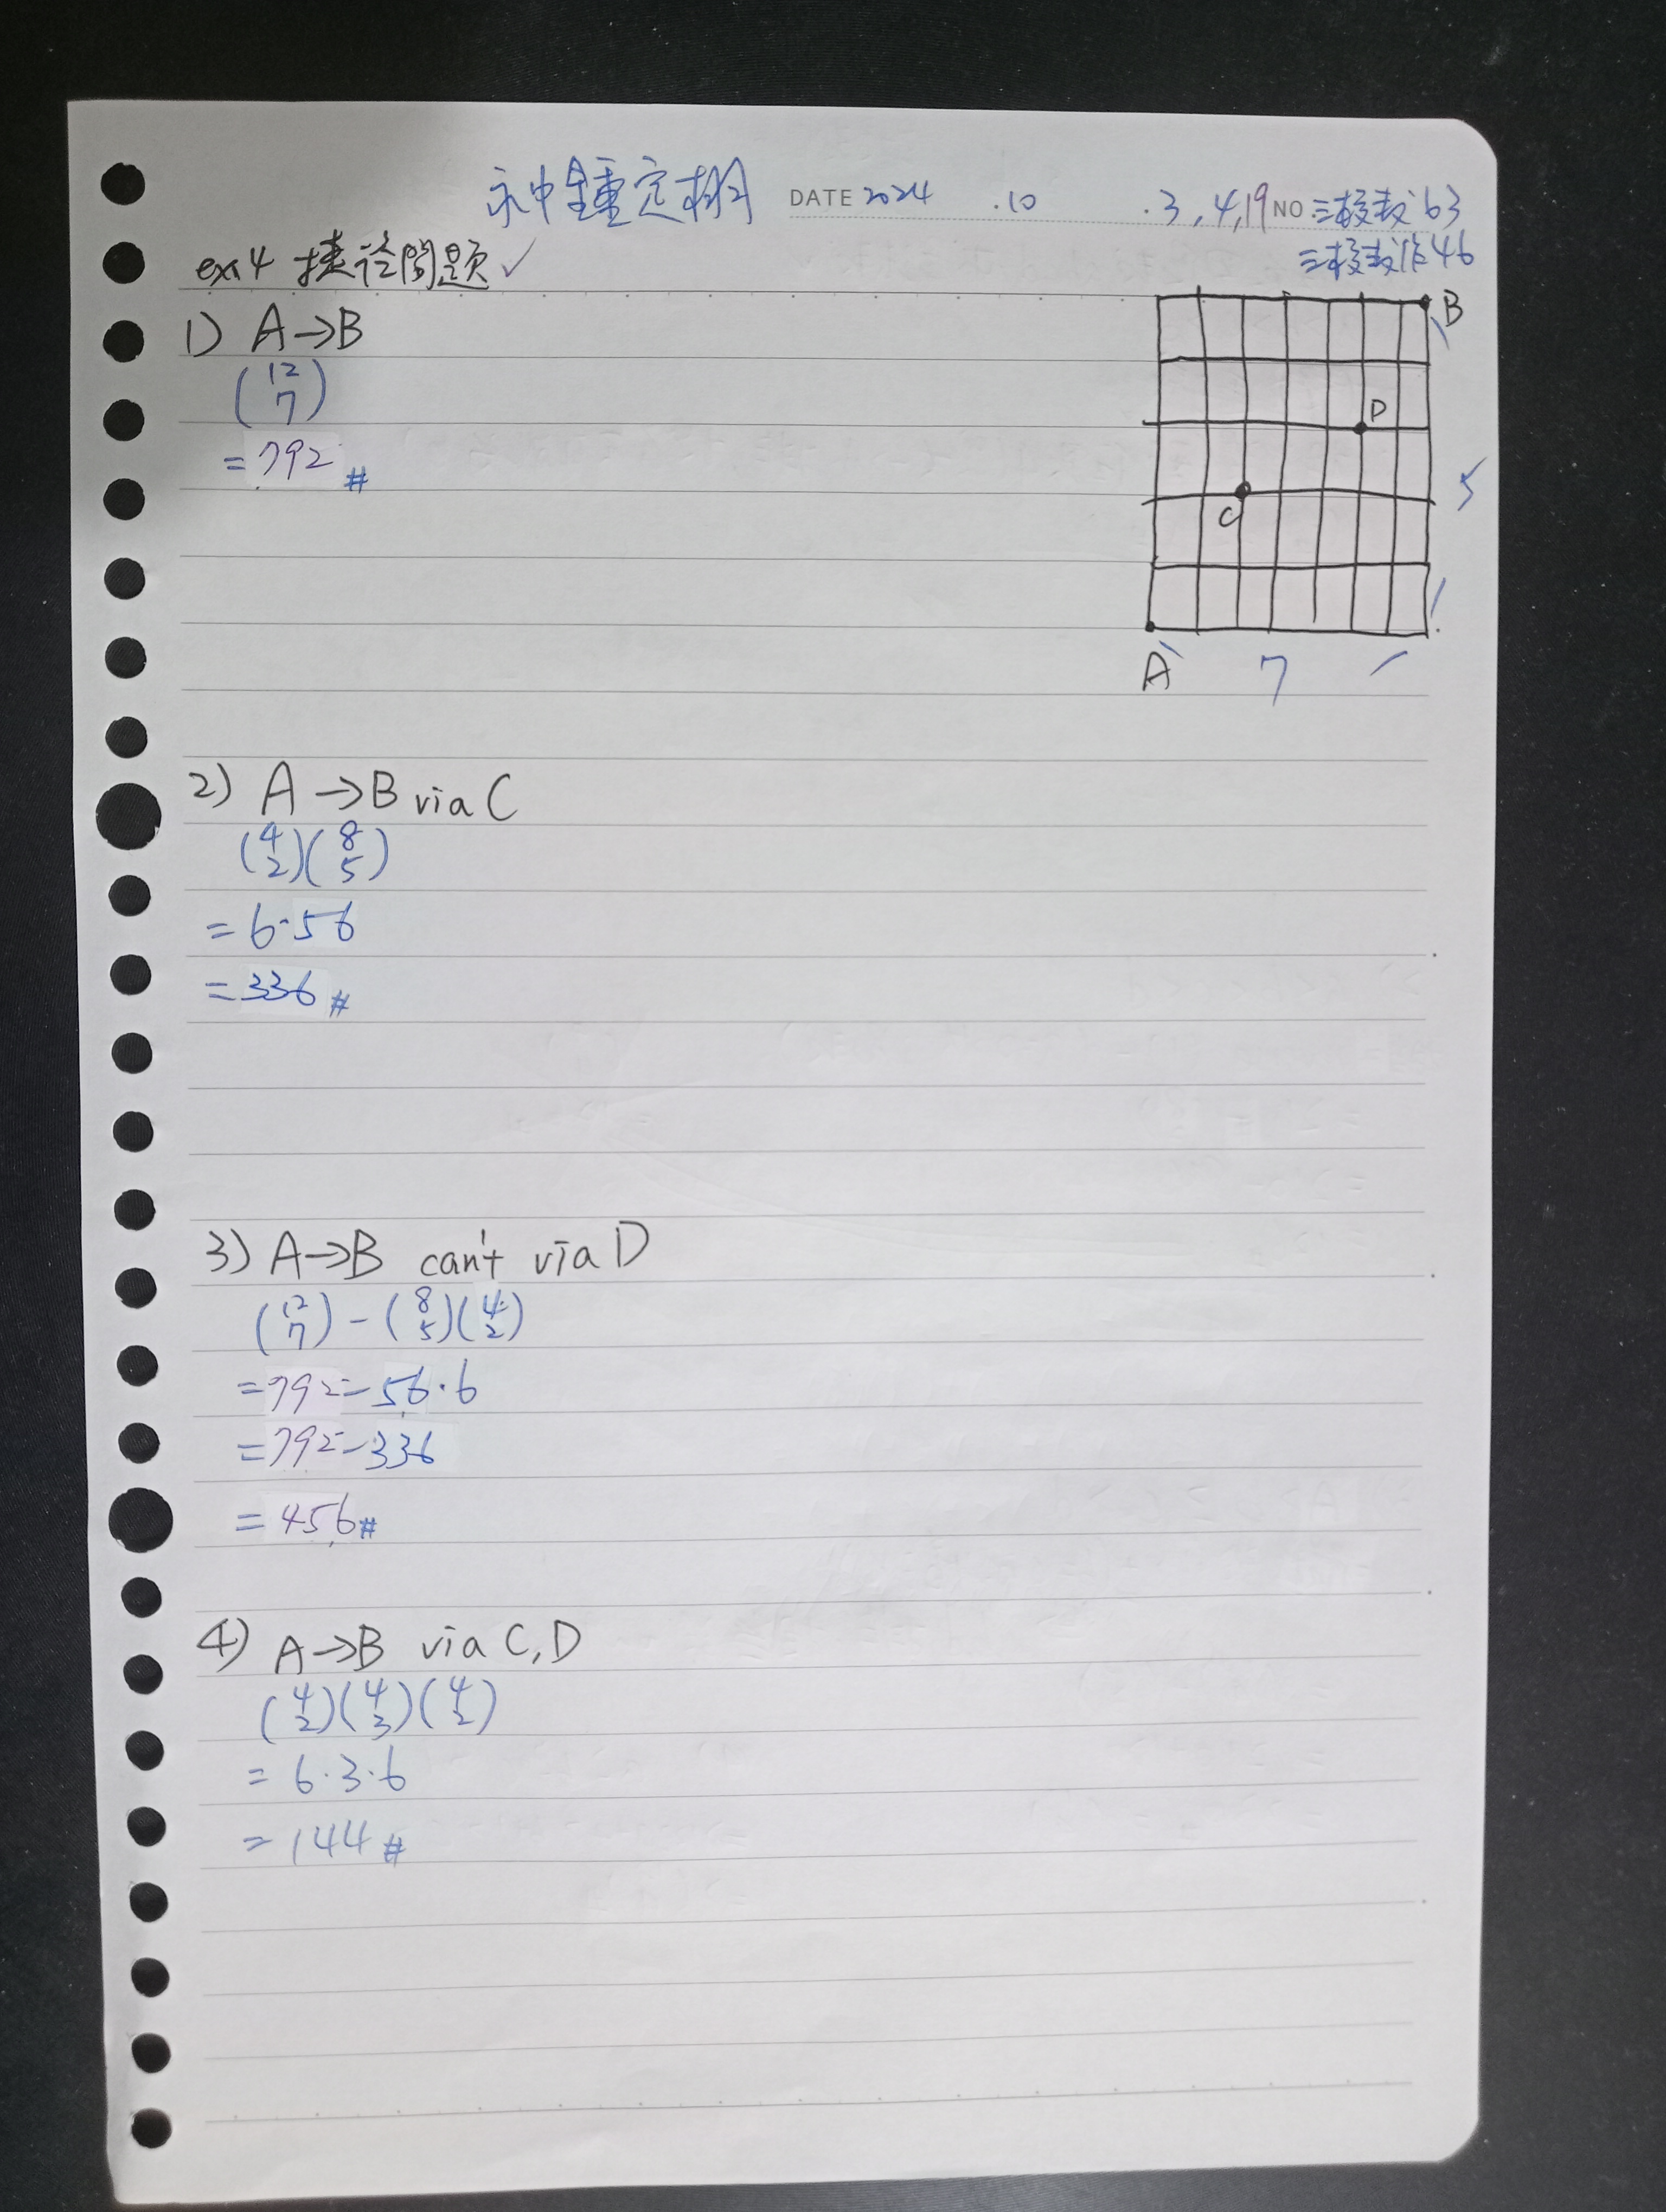 永中鍾定栩 DATE 2024 .10 .3,4,19 NO 三授教63
三授教作46
ex4 捷徑問題✓
1) A→B
(12 7)
=792 #
B
D
C
5
A 7
2) A→B via C
(4 2)(8 5)
=6·56
=336 #
3) A→B can't via D
(12 7)-(8 5)(4 2)
=792-56·6
=792-336
=456#
4) A→B via C,D
(4 2)(4 3)(4 2)
=6·3·6
=144 #